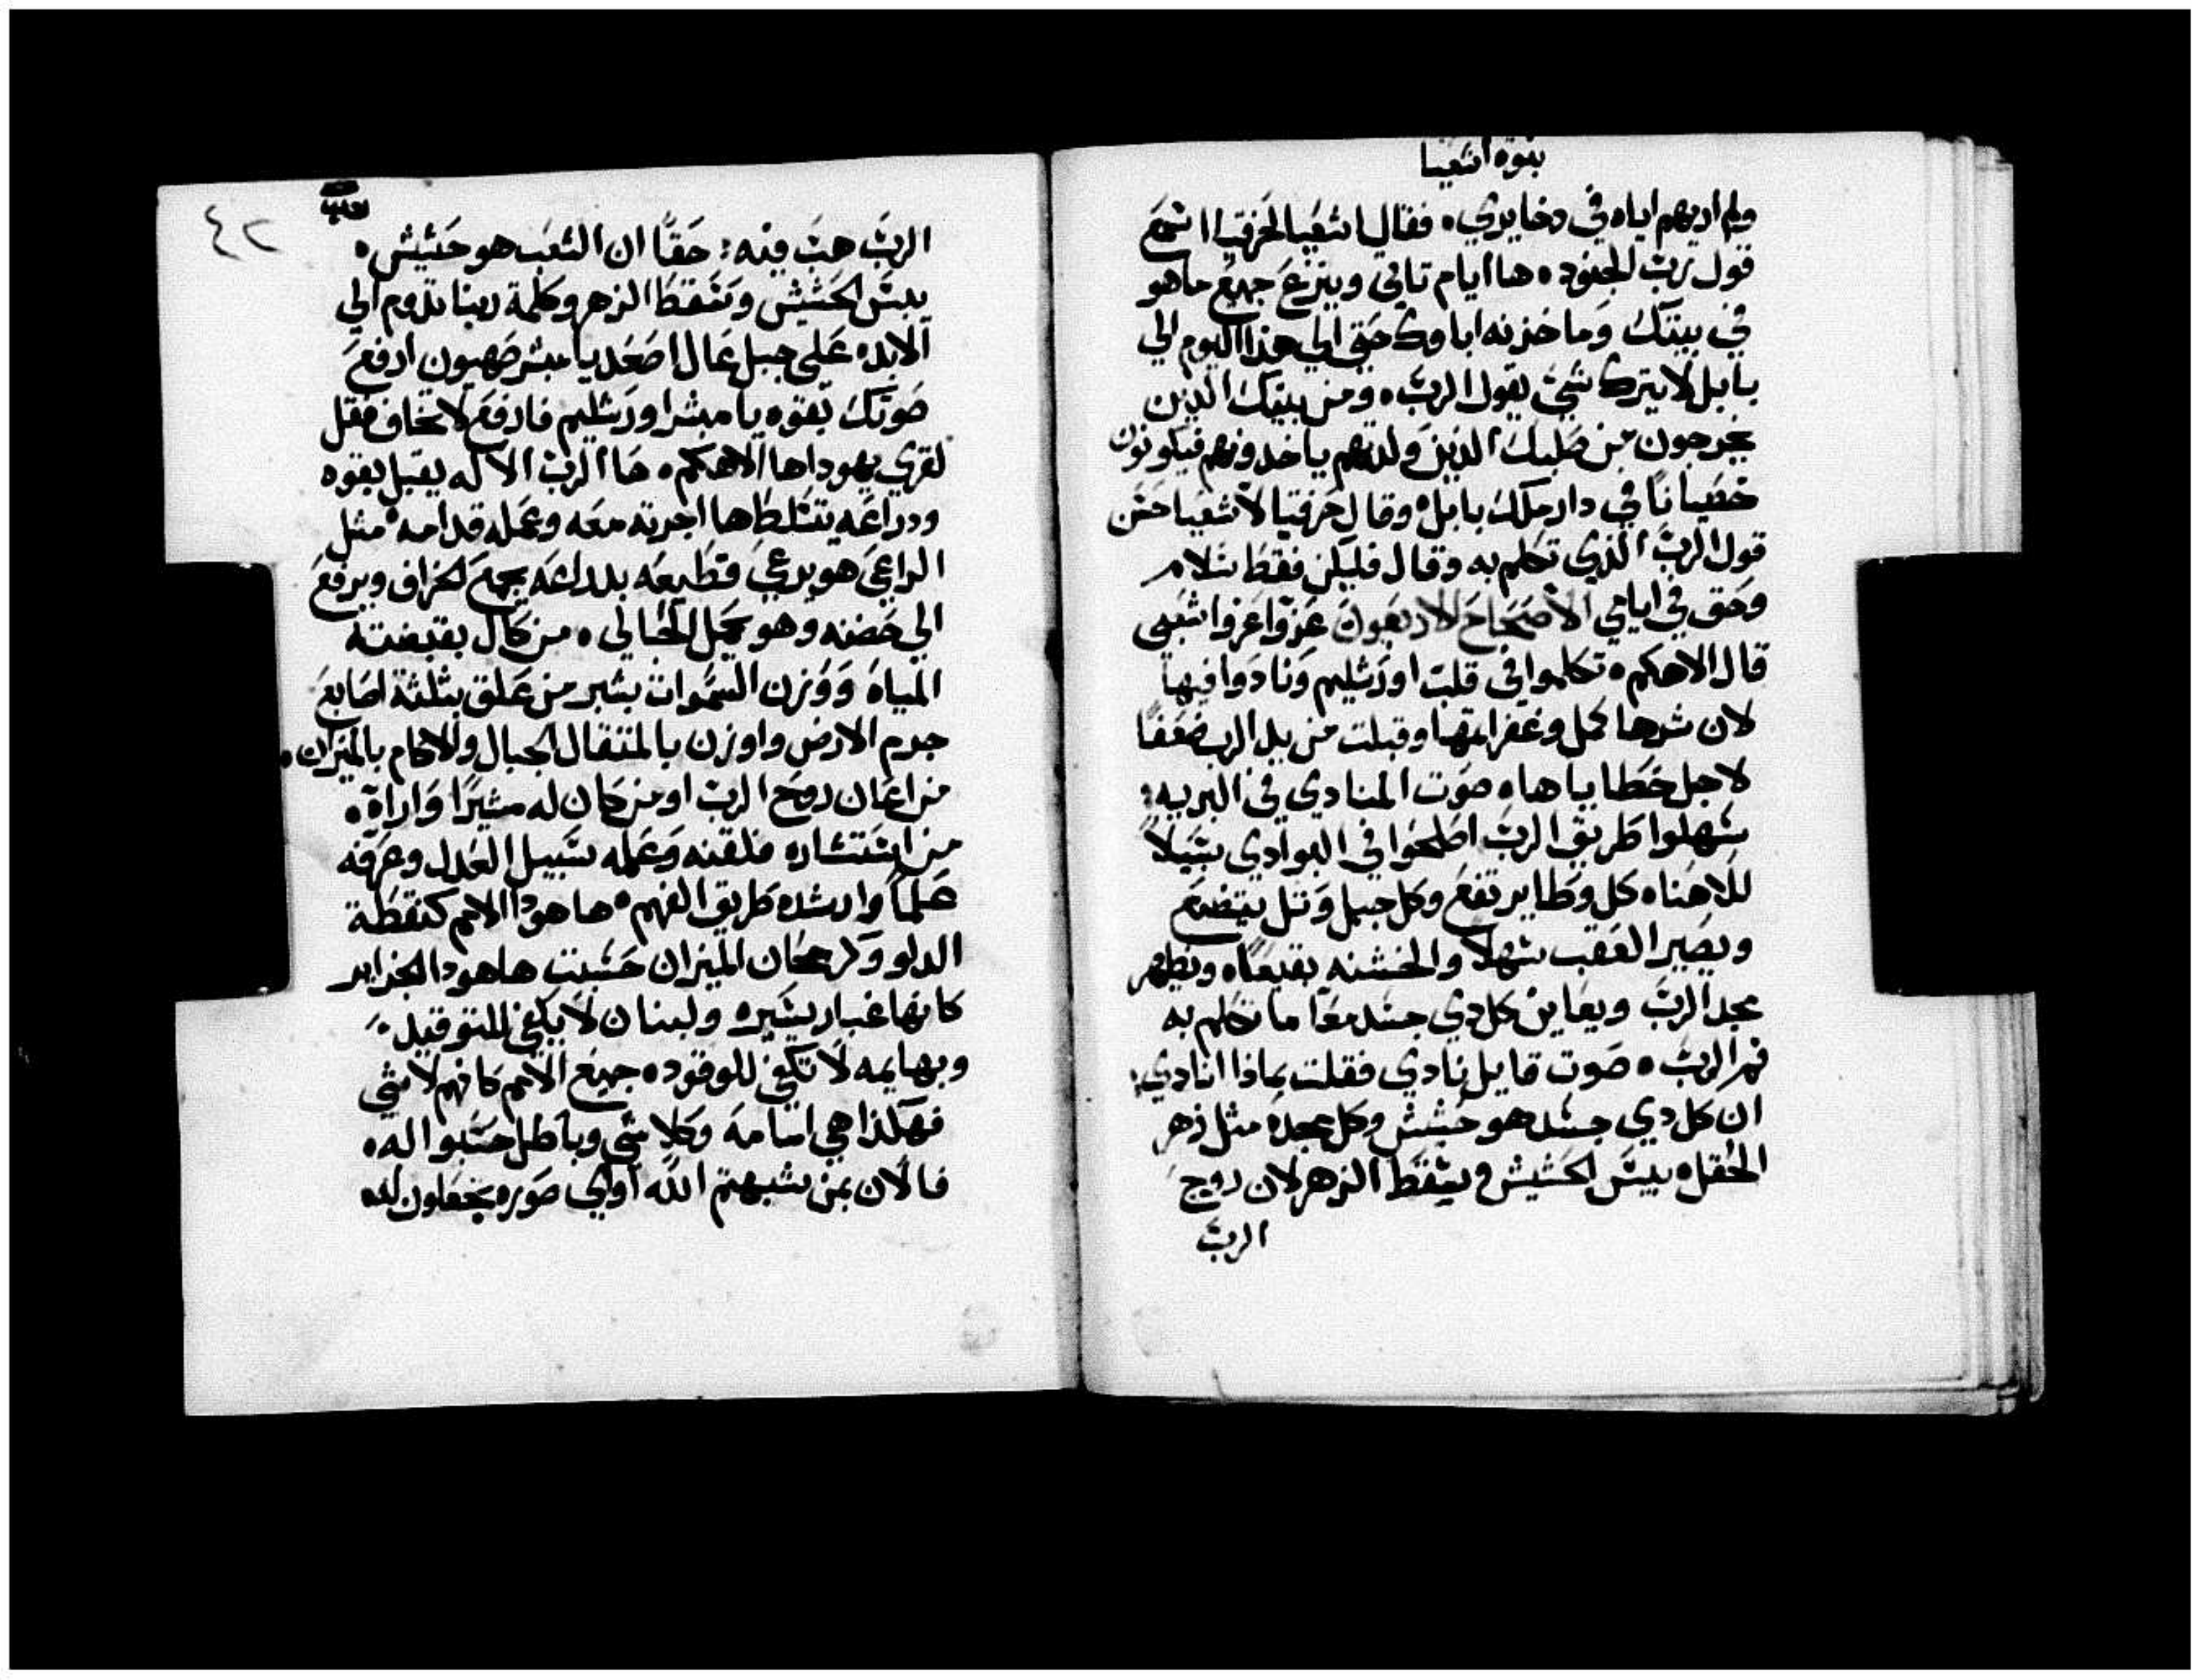 نبوة اشعيا
ولم اريهم اياه في دخايري ٥ فقال اشعيا لحزقيا اسمع
قول رب الجنود ٥ ها ايام تاتي وينزع جميع ما هو
في بيتك وما خزنه اباوك حتى الي هذا اليوم الي
بابل لا يترك شي يقول الرب ٥ ومن بينك الدين
يخرجون من صلبك الذين ولدتهم ياخدونهم فيكونون
خصيانا في دار ملك بابل ٥ وقال حزقيا لاشعيا حسن
قول الرب الذي تكلم به وقال فليكن فقط سلام
وحق في ايامي الاصحاح الاربعون عزوا عزوا شعبي
قال الاهكم ٥ تكلموا في قلب اورشليم ونادوا فيها
لان شرها كمل وغفر اتمها وقبلت من يد الرب ضعفا
لاجل خطاياها ٥ صوت المنادي في البريه :
سهلوا طريق الرب اصلحوا في البوادي سبيلا
للاهنا ٥ كل وطا يرتفع وكل جبل وتل يتضع
ويصير العقب سهلا والخشنه بقيعا ٥ ويظهر
مجد الرب ويعاين كل دي جسد معا ما تكلم به
فم الرب ٥ صوت قايل نادي فقلت بماذا انادي :
ان كل دي جسد هو حشيش وكل مجده مثل زهر
الحقل ٥ يبس الحشيش وسقط الزهر لان روح
الرب
٤٢
الرب هب فيه : حقا ان الشعب هو حشيش ٥
يبس الحشيش وسقط الزهر وكلمة ربنا تدوم الي
الابد ٥ على جبل عال اصعد يا مبشر صهيون ارفع
صوتك بقوه يا مبشر اورشليم فارفع لا تخاف فقل
لقري يهودا ها الاهكم ٥ ها الرب الاله يقبل بقوه
ودراعه يتسلط ها اجرته معه وعمله قدامه ٥ مثل
الراعي هو يرعي قطيعه بدراعه يجمع الخراف ويرفع
الي حضنه وهو يحمل الحبالي ٥ من كال بقبضته
المياه ووزن السموات بشبر من علق بثلثة اصابع
جرم الارض واوزن بالمتقال الجبال والاكام بالميزان ٥
من اعان روح الرب او من كان له مشيرا واراه ٥
من استشاره فلقنه وعمله سبيل العدل وعرفه
علما وارشده طريق الفهم ٥ ها هودا الامم كنقطة
الدلو وكرجحان الميزان حسبت ها هودا الجزاير
كانها غبار يسيره ولبنان لا يكفي للتوقيد
وبهايمه لا تكفي للوقود ٥ جميع الامم كانهم لا شي
فهكذا هي امامه وكلا شي وباطل حسبوا له ٥
فالان بمن شبهتم الله او اي صوره تجعلون له